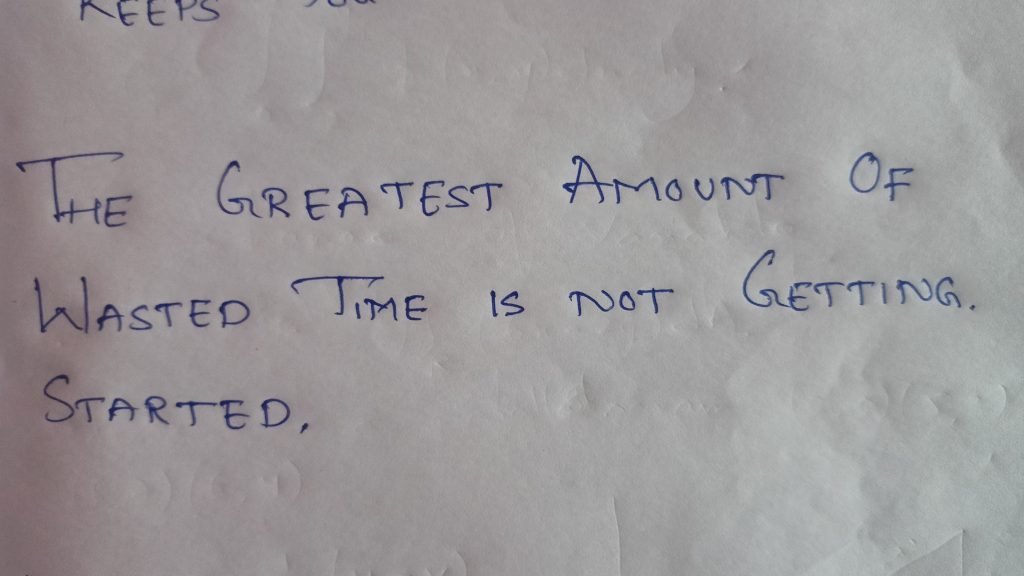 KEEPS YOU
THE GREATEST AMOUNT OF
WASTED TIME IS NOT GETTING.
STARTED,